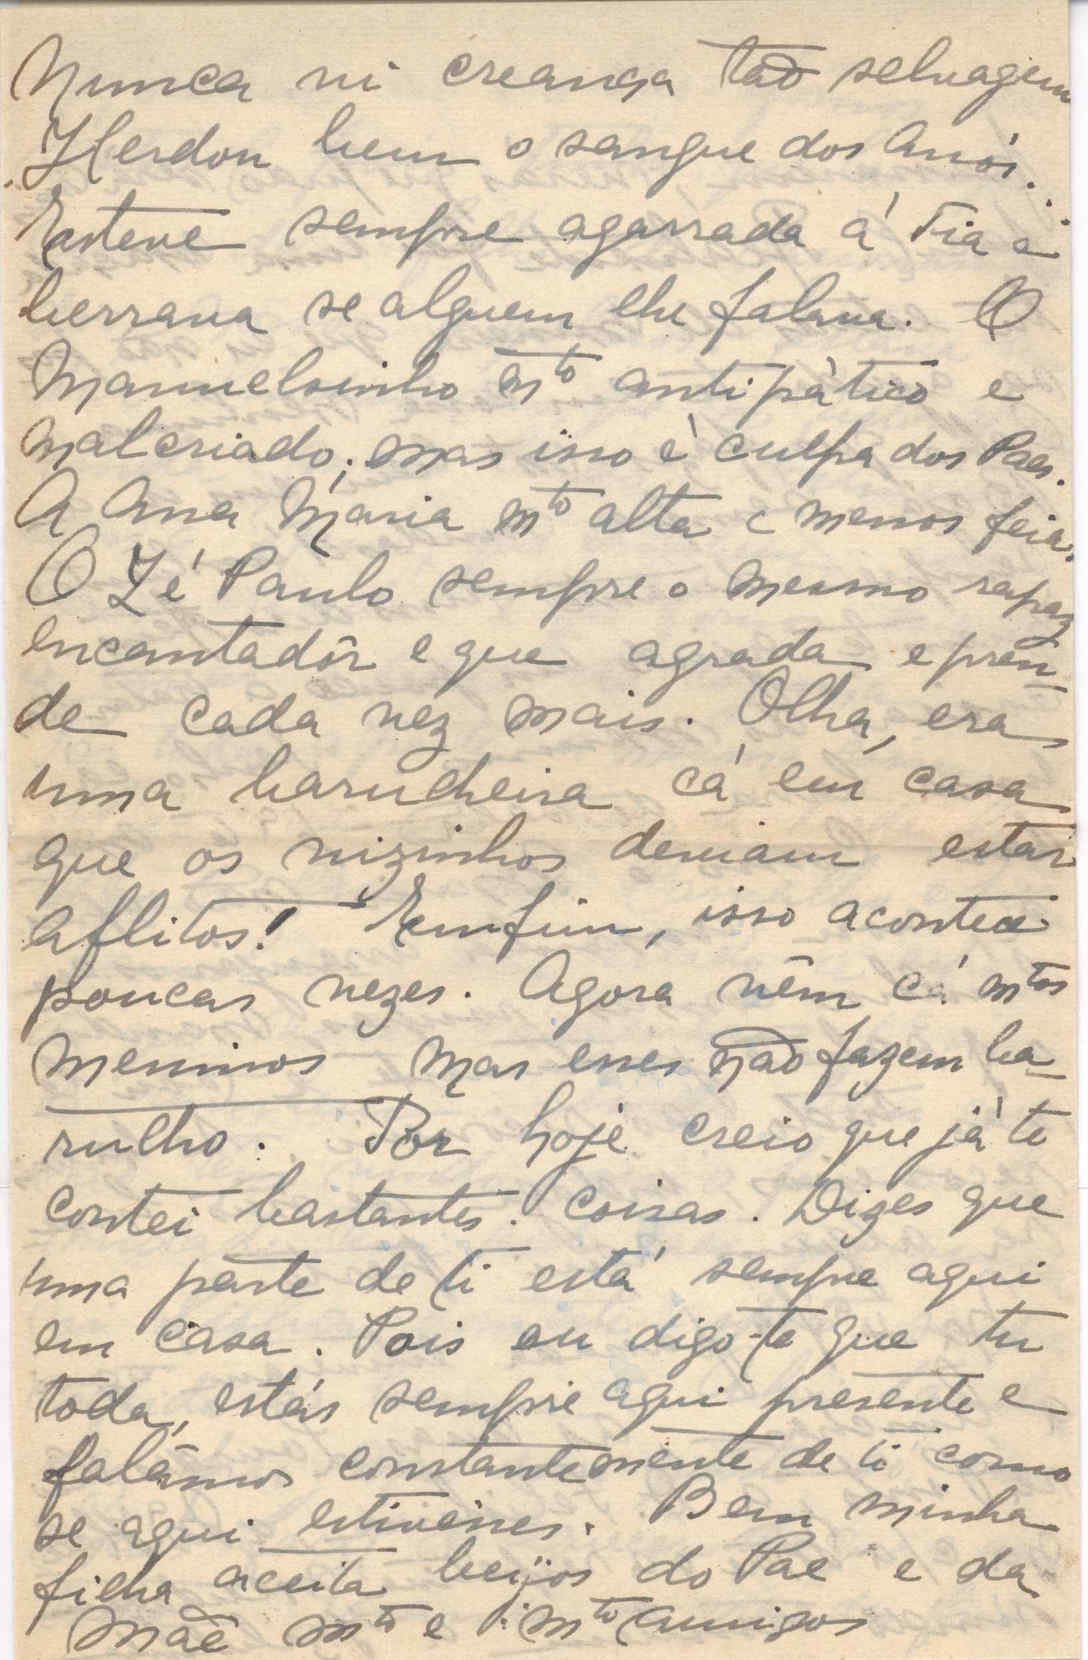 Nunca vi creança tão selvagem
Herdou bem o sangue dos Avós...
Esteve sempre agarrada á Tia e
berrava se alguem lhe falava. O
Manuelsinho mto antipático e
malcriado; mas isso é culpa dos Paes.
A Ana Maria mto alta e menos feia.
O Zé Paulo sempre o mesmo rapaz
encantadôr e que agrada e pren-
de cada vez mais. Olha, era
uma barulheira cá em casa
que os vizinhos deviam estar
aflitos! Emfim, isso acontece
poucas vezes. Agora vêm cá mtos
meninos mas esses não fazem ba-
rulho. Por hoje creio que já te
contei bastantes coisas. Dizes que
uma parte de ti está sempre aqui
em casa. Pois eu digo-te que tu
toda, estás sempre aqui presente e
falâmos constantemente de ti como
se aqui estivesses. Bem minha
filha aceita beijos do Pae e da
Mãe mto e mto amigos